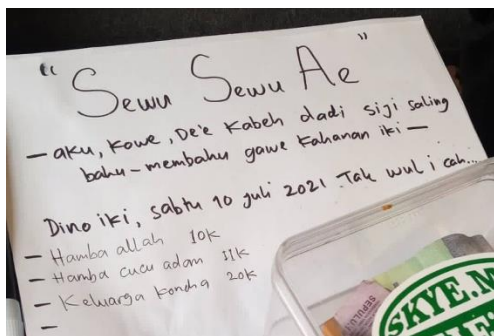 “Sewu Sewu Ae”
– aku, kowe, De'e kabeh dadi siji saling
bahu-membahu gawe kahanan iki –
Dino iki, sabtu 10 juli 2021. Tak wul i cah...
– Hamba allah 10K
– Hamba cucu adam 11K
– Keluarga kondha 20K
–
SEPULU
SKYE.M